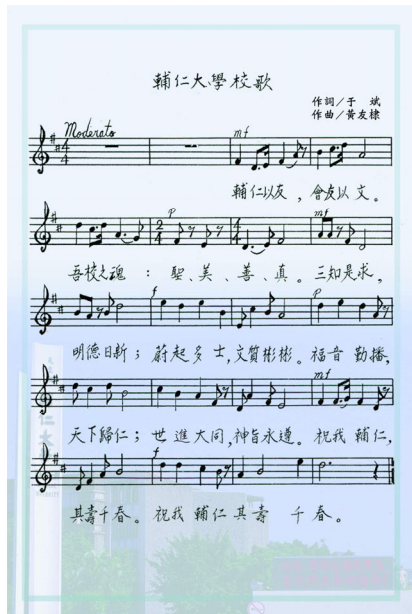 輔仁大學校歌
作詞／于　斌
作曲／黃友棣
Moderato
mf
輔仁以友，會友以文。
p
mf
吾校之魂：聖、美、善、真。三知是求，
f
p
明德日新；蔚起多士，文質彬彬。福音勤播，
mf
天下歸仁；世進大同，神旨永遵。祝我輔仁，
f
其壽千春。祝我輔仁其壽千春。